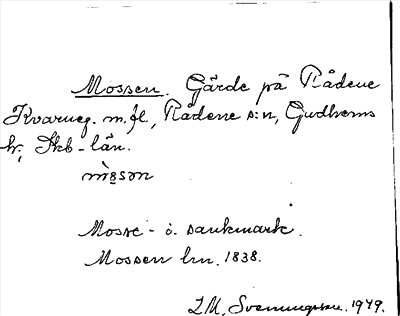 Mossen. Gärde på Rådene
Kvarneg. m.fl., Rådene s:n, Gudhems
hr, Skb-län.
mòsən
Mosse- o. sankmark.
Mossen lm. 1838.
I.M. Svenungsson. 1949.